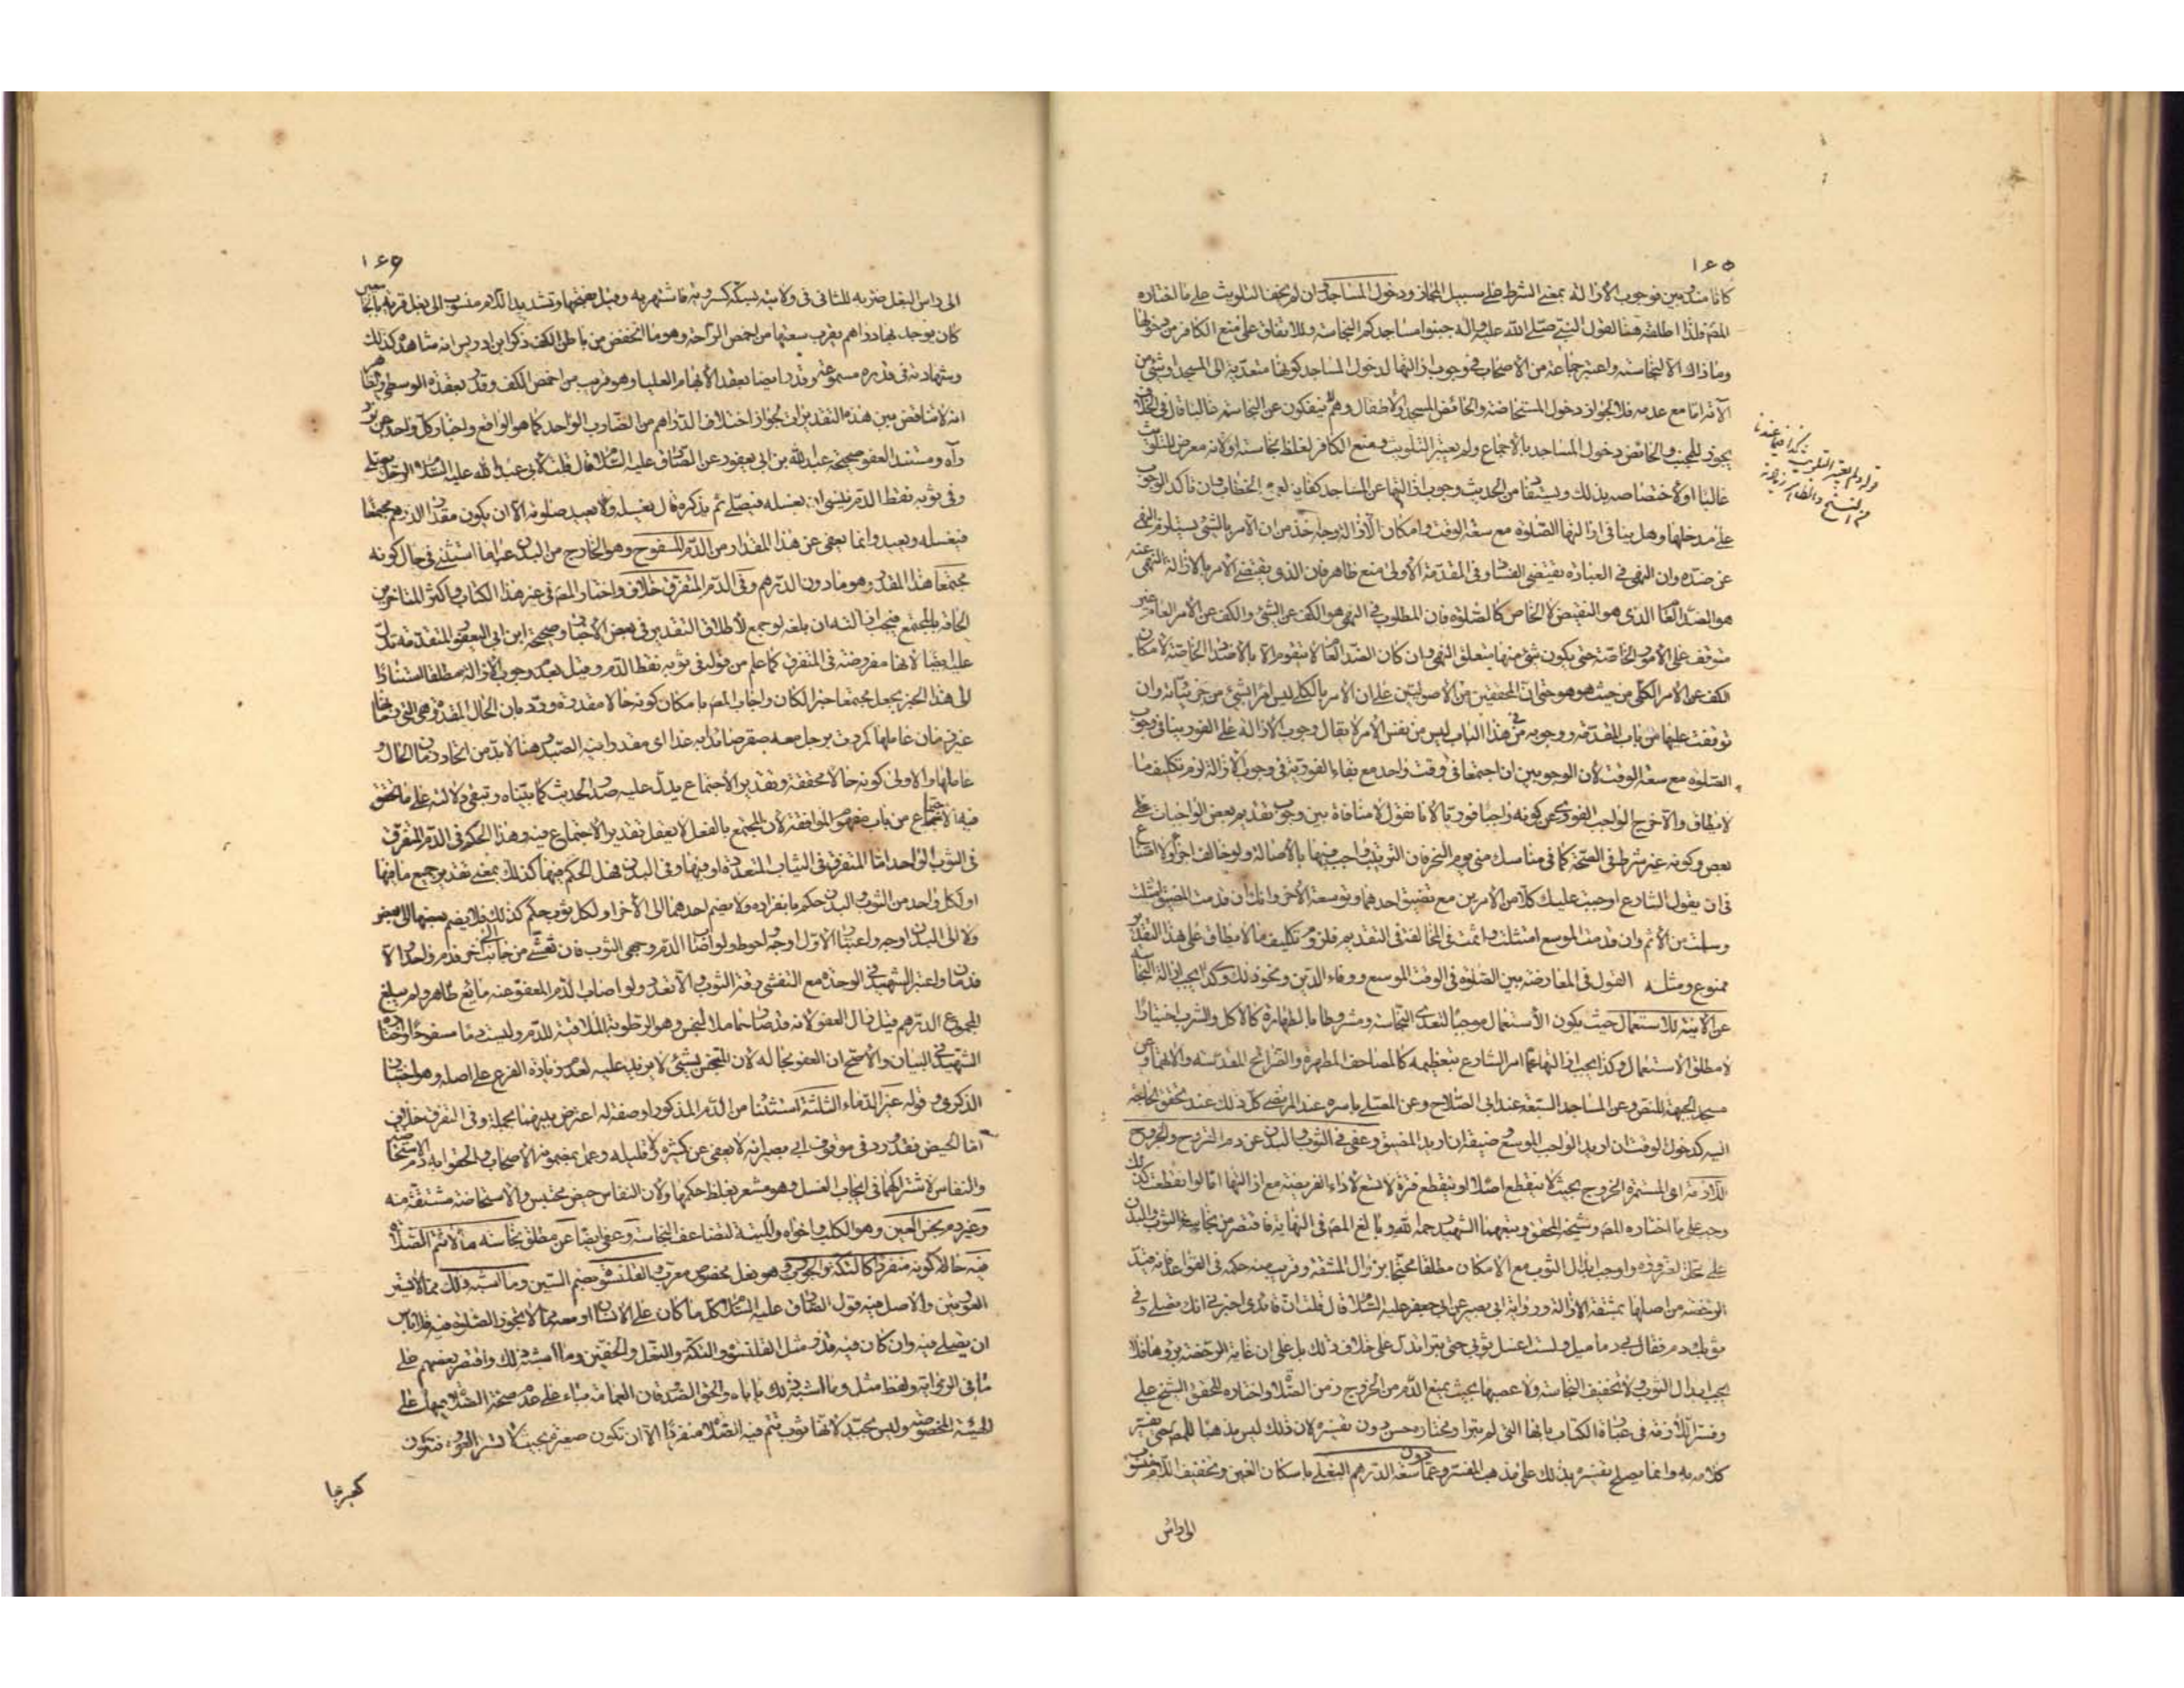 ١٦٥
كانا مندوبين فوجوب الازالة بمعنى الشرط على سبيل المجاز ودخول المساجد وان لم يخف التلويث على ما اختاره
المصنف ولذا اطلقه هنا لقول النبي صلى الله عليه واله جنبوا مساجدكم النجاسة وللاتفاق على منع الكافر من دخولها
وما ذاك الا لنجاسته واعتبر جماعة من الاصحاب في وجوب ازالتها لدخول المساجد كونها متعدية الى المسجد او شئ من
آلاته اما مع عدمه فلا لجواز دخول المستحاضة والحائض المسجد والاطفال وهم لا ينفكون عن النجاسة غالبا قال في الخلاف
يجوز للجنب والحائض دخول المساجد بالاجماع ولم يعتبر التلويث ويمنع الكافر لغلظ نجاسته او لانه معرض للتلويث
غالبا او لاختصاصه بذلك ويستفاد من الحديث وجوب ازالتها عن المساجد كفاية لعموم الخطاب وان تأكد الوجوب
على مدخلها وهل ينافي ازالتها الصلوة مع سعة الوقت وامكان الازالة وجه اخذ من ان الامر بالشئ يستلزم النهي
عن ضده وان النهي في العبادة يقتضي الفساد وفي المقدمة الاولى منع ظاهر فان الذي يقتضي الامر بالازالة النهي عنه
هو الضد العام الذي هو النقيض لا الخاص كالصلوة فان المطلوب في النهي هو الكف عن الشئ والكف عن الامر العام غير
متوقف على الامور الخاصة حتى يكون شئ منها متعلق النهي وان كان الضد العام لا يتقوم الا بالاضداد الخاصة لامكان
الكف عن الامر الكلي من حيث هو هو حتى ان المحققين من الاصوليين على ان الامر بالكلي ليس امرا بشئ من جزئياته وان
توقفت عليها من باب المقدمة ووجوبه من هذا الباب ليس من نفس الامر لا يقال وجوب الازالة على الفور ينافي وجوب
الصلوة مع سعة الوقت لان الوجوبين ان اجتمعا في وقت واحد مع بقاء الفورية في وجوب الازالة لزم تكليف ما
لا يطاق والا خرج الواجب الفوري عن كونه واجبا فوريا لانا نقول لا منافاة بين وجوب تقديم بعض الواجبات على
بعض وكونه غير شرط في الصحة كما في مناسك منى يوم النحر فان الترتيب واجب فيها بالاصالة ولو خالف اجزأ ولا امتناع
في ان يقول الشارع اوجبت عليك كلا من الامرين مع تضيق احدهما وتوسعة الاخر وانك ان قدمت المضيق امتثلت
وسلمت من الاثم وان قدمت الموسع امتثلت واثمت في المخالفة في التقديم فلزوم تكليف ما لا يطاق على هذا التقدير
ممنوع ومثله القول في المعارضة بين الصلوة في الوقت الموسع ووفاء الدين ونحو ذلك وكذا يجب ازالة النجاسة
عن الآنية للاستعمال حيث يكون الاستعمال موجبا لتعدي النجاسة ومشروطا بالطهارة كالاكل والشرب اختيارا
لا مطلق الاستعمال وكذا يجب ازالتها عما امر الشارع بتعظيمه كالمصاحف المطهرة والضرائح المقدسة والاتمام وعن
مسجد الجبهة للنص وعن المساجد السبعة عند ابي الصلاح وعن المصلى باسره عند المرتضى كل ذلك عند تحقق الحاجة
اليه كدخول الوقت ان اريد الواجب الموسع وضيقه ان اريد المضيق وعفي في الثوب والبدن عن دم القروح والجروح
اللازمة اي المستمرة الخروج بحيث لا ينقطع اصلا او ينقطع فترة لا تسع لاداء الفريضة مع ازالتها اما لو انقطعت كذلك
وجب على ما اختاره المصنف وشيخه المحقق وتبعهما الشهيد رحمه الله وبالغ المصنف في النهاية فاقتصر من نجاسة الثوب والبدن
على محل الضرورة واوجب ابدال الثوب مع الامكان مطلقا محتجا بزوال المشقة وقريب منه حكمه في القواعد فانه قيد
الرخصة من اصلها بمشقة الازالة ورواية ابي بصير عن ابي جعفر عليه السلام قال قلت ان قائدي اخبرني انك تصلي وفي
ثوبك دم فقال بي دماميل ولست اغسل ثوبي حتى تبرأ تدل على خلاف ذلك بل على ان غاية الرخصة برؤها فلا
يجب ابدال الثوب ولا تخفيف النجاسة ولا عصبها بحيث يمنع الدم من الخروج زمن الصلوة واختاره المحقق الشيخ علي
وفسر اللازمة في عبارة الكتاب بانها التي لم تبرأ ومختاره حسن دون تفسيره لان ذلك ليس مذهبا للمصنف حتى يفسر
كلامه به وانما يصلح تفسيره بذلك على مذهب المفسر وعما دون سعة الدرهم البغلي باسكان الغين وتخفيف اللام منسوب
الى رأس
قوله ولم يعتبر التلويث كذا فيما عندنا
من النسخ والظاهر زيادته
١٦٦
الى رأس البغل ضربه للثاني في ولايته بسكة كسروية فاشتهر به وقيل بفتحها وتشديد اللام منسوب الى بغل قرية بالجامعين
كان يوجد بها دراهم يقرب سعتها من اخمص الراحة وهو ما انخفض من باطن الكف ذكر ابن ادريس انه شاهده كذلك
وشهادته في قدره مسموعة وقدر ايضا بعقد الابهام العليا وهو قريب من اخمص الكف وقدر بعقدة الوسطى والظاهر
انه لا تناقض بين هذه التقديرات لجواز اختلاف الدراهم من الضارب الواحد كما هو الواقع واخبار كل واحد عن فرد
رآه ومستند العفو صحيحة عبد الله بن ابي يعفور عن الصادق عليه السلام قال قلت لابي عبد الله عليه السلام الرجل يصلي
وفي ثوبه نقط الدم فينسى ان يغسله فيصلي ثم يذكره قال يغسله ولا يعيد صلوته الا ان يكون مقدار الدرهم مجتمعا
فيغسله ويعيد وانما يعفى عن هذا المقدار من الدم المسفوح وهو الخارج من البدن غير ما استثني في حال كونه
مجتمعا هذا القدر وهو ما دون الدرهم وفي الدم المتفرق خلاف واختار المصنف في غير هذا الكتاب واكثر المتاخرين
الحاقه بالمجتمع فيجب ازالته ان بلغه لو جمع لاطلاق التقدير في بعض الاخبار وصحيحة ابن ابي اليعفور المتقدمة تدل
عليه ايضا لانها مفروضة في المتفرق كما علم من قوله في ثوبه نقط الدم وقيل بعدم وجوب الازالة مطلقا استنادا
الى هذا الخبر بجعل مجتمعا خبرا لكان واجاب المصنف بامكان كونه حالا مقدرة ورد بان الحال المقدرة هي التي زمانها
غير زمان عاملها كمررت برجل معه صقر صائدا به غدا اي مقدرا به الصيد وهنا لابد من اتحاد زمان الحال و
عاملها والاولى كونه حالا محققة وتقدير الاجتماع يدل عليه صدر الحديث كما بيناه وتبقى دلالته على ما تحقق
فيه الاجتماع من باب مفهوم الموافقة لان المجتمع بالفعل لا يعقل تقدير الاجتماع فيه وهذا الحكم في الدم المتفرق
في الثوب الواحد اما المتفرق في الثياب المتعددة او فيها وفي البدن فهل الحكم فيها كذلك بمعنى تقدير جميع ما فيها
او لكل واحد من الثوب والبدن حكم بانفراده ولا يضم احدهما الى الاخر او لكل ثوب حكم كذلك فلا يضم بعضها الى بعض
ولا الى البدن اوجه واعتبار الاول اوجه واحوط ولو اصاب الدم وجهي الثوب فان تفشى من جانب الى آخر فدم واحد والا
فدمان واعتبر الشهيد في الوحدة مع التفشي رقة الثوب والا تعدد ولو اصاب الدم المعفو عنه مائع طاهر ولم يبلغ
المجموع الدرهم قيل زال العفو لانه قد صار حاملا للنجس وهو الرطوبة الملاقية للدم وليست دما مسفوحا واختاره
الشهيد في البيان والاصح ان العفو بحاله لان المتنجس بشئ لا يزيد عليه لعدم زيادة الفرع على اصله وهو اختيار
الذكرى وقوله غير الدماء الثلثة استثناء من الدم المذكور او صفة له اعترض بينهما بجملة وفي المتفرق خلاف
اما الحيض فقد ورد في موقوف ابي بصير انه لا يعفى عن كثيره وقليله وعمل بمضمونه الاصحاب والحقوا به دم الاستحاضة
والنفاس لاشتراكهما في ايجاب الغسل وهو مشعر بغلظ حكمها ولان النفاس حيض محتبس والاستحاضة مشتقة منه
وغير دم نجس العين وهو الكلب واخواه والميتة لتضاعف النجاسة وعفي ايضا عن مطلق نجاسة ما لا تتم الصلوة
فيه حالة كونه منفردا كالتكة والجورب وهو نعل مخصوص معرب والقلنسوة بضم السين وما اشبه ذلك مما لا يستر
العورتين والاصل فيه قول الصادق عليه السلام كل ما كان على الانسان او معه مما لا تجوز الصلوة فيه فلا باس
ان يصلي فيه وان كان فيه قذر مثل القلنسوة والتكة والنعل والخفين وما اشبه ذلك واقتصر بعضهم على
ما في الرواية ولفظ مثل وما اشبه ذلك ياباه والحق الصدوق العمامة بناء على عدم صحة الصلوة فيها على
الهيئة المخصوصة وليس بجيد لانها ثوب تتم فيه الصلوة منفردا الا ان تكون صغيرة بحيث لا تستر العورة فتكون
كغيرها